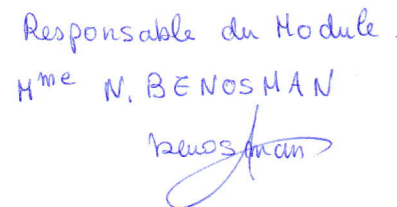 Responsable du Module.
Mme N. BENOSMAN
benosman